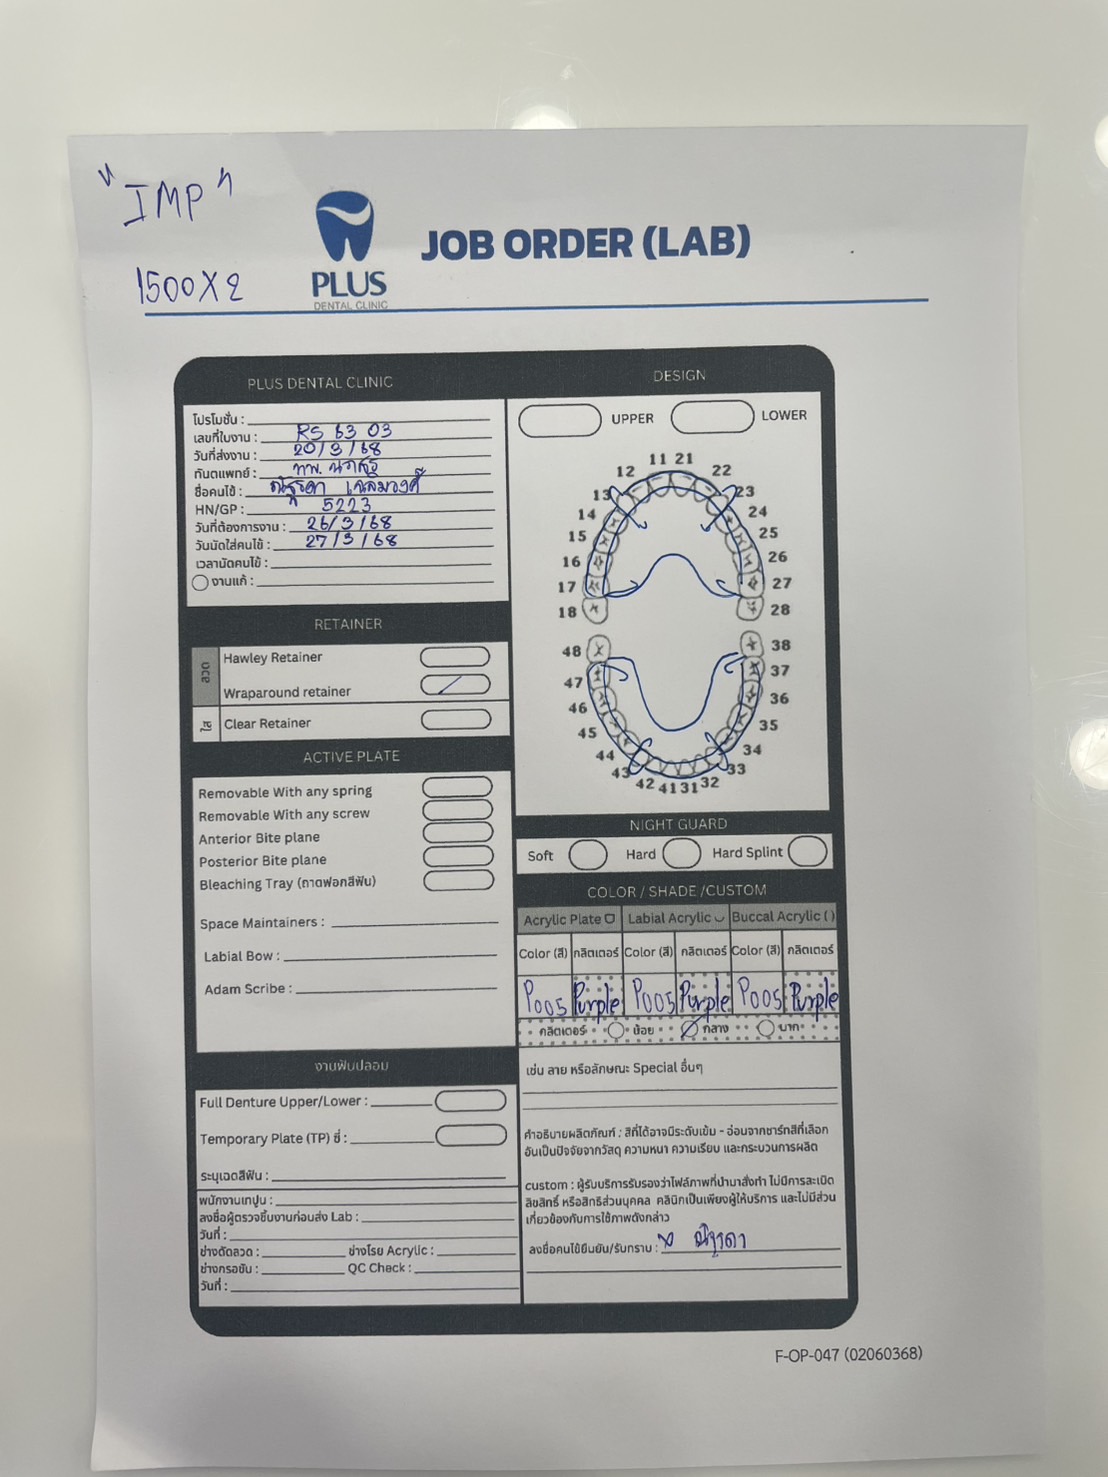 "IMP"
1500X2
PLUS
DENTAL CLINIC
JOB ORDER (LAB)
PLUS DENTAL CLINIC
โปรโมชั่น :
เลขที่ใบงาน : RS 63 03
วันที่ส่งงาน : 20/3/68
ทันตแพทย์ : ทพ.
ชื่อคนไข้ :
HN/GP : 5223
วันที่ต้องการงาน : 26/3/68
วันนัดใส่คนไข้ : 27/3/68
เวลานัดคนไข้ :
งานแก้ :
RETAINER
ลวด
Hawley Retainer
Wraparound retainer
ใส
Clear Retainer
ACTIVE PLATE
Removable With any spring
Removable With any screw
Anterior Bite plane
Posterior Bite plane
Bleaching Tray (ถาดฟอกสีฟัน)
Space Maintainers :
Labial Bow :
Adam Scribe :
งานฟันปลอม
Full Denture Upper/Lower :
Temporary Plate (TP) ซี่ :
ระบุเฉดสีฟัน :
พนักงานเทปูน :
ลงชื่อผู้ตรวจชิ้นงานก่อนส่ง Lab :
วันที่ :
ช่างดัดลวด : ช่างโรย Acrylic :
ช่างกรอขัด : QC Check :
วันที่ :
DESIGN
UPPER LOWER
11 21
12 22
13 23
14 24
15 25
16 26
17 27
18 28
48 38
47 37
46 36
45 35
44 34
43 33
42 41 31 32
NIGHT GUARD
Soft Hard Hard Splint
COLOR / SHADE /CUSTOM
Acrylic Plate Labial Acrylic Buccal Acrylic ( )
Color (สี) กลิตเตอร์ Color (สี) กลิตเตอร์ Color (สี) กลิตเตอร์
P005 Purple P005 Purple P005 Purple
กลิตเตอร์ น้อย กลาง มาก
เช่น ลาย หรือลักษณะ Special อื่นๆ
คำอธิบายผลิตภัณฑ์ : สีที่ได้อาจมีระดับเข้ม - อ่อนจากชาร์ทสีที่เลือก
อันเป็นปัจจัยจากวัสดุ ความหนา ความเรียบ และกระบวนการผลิต
custom : ผู้รับบริการรับรองว่าไฟล์ภาพที่นำมาสั่งทำ ไม่มีการละเมิด
ลิขสิทธิ์ หรือสิทธิส่วนบุคคล คลินิกเป็นเพียงผู้ให้บริการ และไม่มีส่วน
เกี่ยวข้องกับการใช้ภาพดังกล่าว
ลงชื่อคนไข้ยืนยัน/รับทราบ : x
F-OP-047 (02060368)